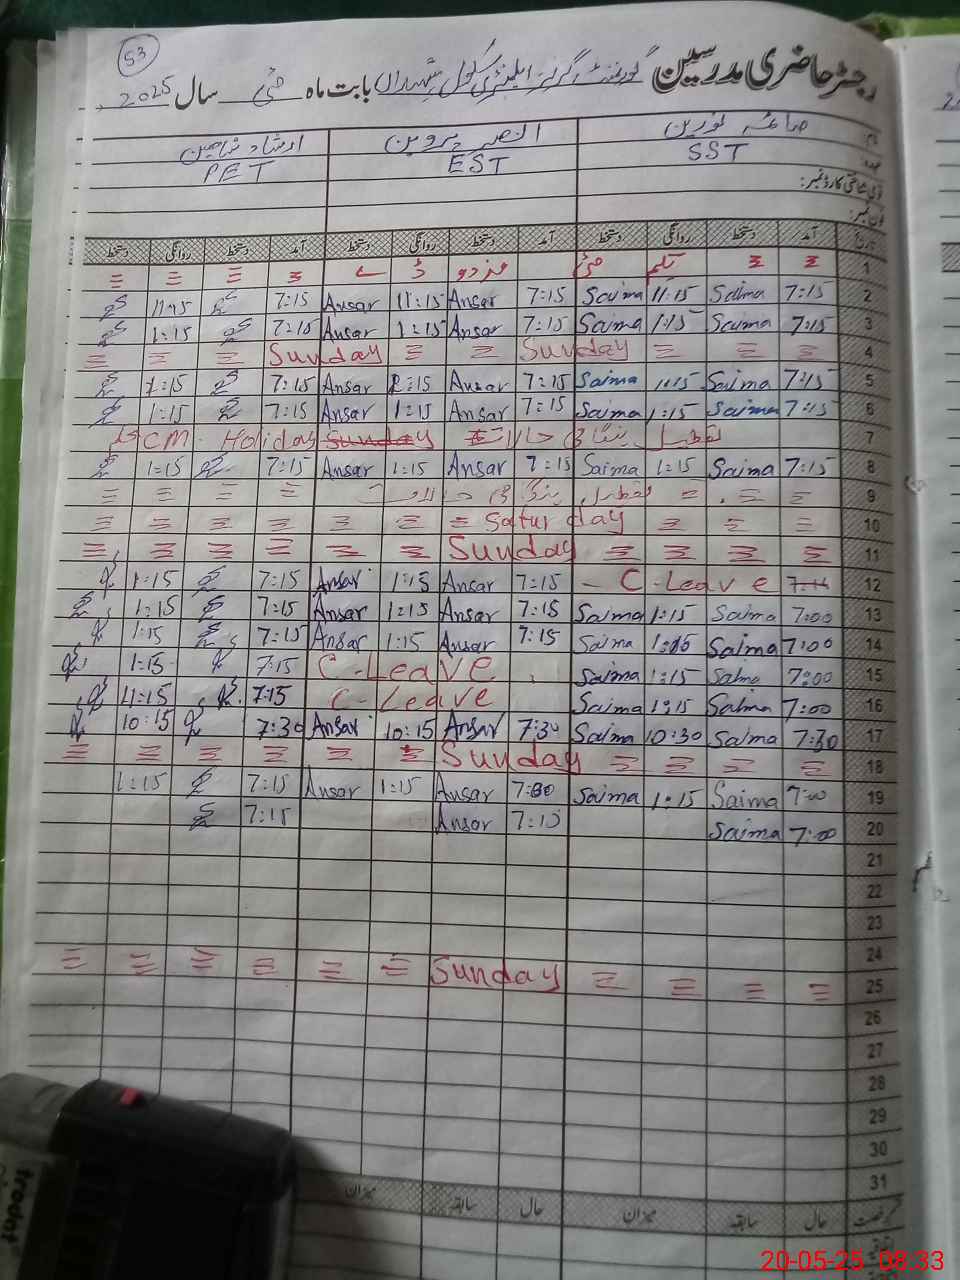 53
رجسٹر حاضری مدرسین گورنمنٹ گرلز ایلیمنٹری سکول بابت ماہ مئی سال 2025
نام: صائمہ نورین النصر پروین ارشاد شاہین
عہدہ: SST EST PET
قومی شناختی کارڈ نمبر:
فون نمبر:
تاریخ آمد دستخط روانگی دستخط آمد دستخط روانگی دستخط آمد دستخط روانگی دستخط
1 یکم مئی مزدور ڈے
2 7:15 Saima 11:15 Saima 7:15 Ansar 11:15 Ansar 7:15 11:15
3 7:15 Saima 1:15 Saima 7:15 Ansar 1:15 Ansar 7:15 1:15
4 Sunday Sunday
5 7:15 Saima 1:15 Saima 7:15 Ansar 1:15 Ansar 7:15 1:15
6 7:15 Saima 1:15 Saima 7:15 Ansar 1:15 Ansar 7:15 1:15
7 تعطیل ہنگامی حالات Sunday CM Holiday
8 7:15 Saima 1:15 Saima 7:15 Ansar 1:15 Ansar 7:15 1:15
9 تعطیل ہنگامی حالات
10 Saturday
11 Sunday
12 C-Leave 7:15 Ansar 1:15 Ansar 7:15 1:15
13 7:00 Saima 1:15 Saima 7:15 Ansar 1:15 Ansar 7:15 1:15
14 7:00 Saima 1:15 Saima 7:15 Ansar 1:15 Ansar 7:15 1:15
15 7:00 Saima 1:15 Saima C-Leave 7:15 1:15
16 7:00 Saima 1:15 Saima C-Leave 7:15 11:15
17 7:30 Saima 10:30 Saima 7:30 Ansar 10:15 Ansar 7:30 10:15
18 Sunday
19 7:00 Saima 1:15 Saima 7:00 Ansar 1:15 Ansar 7:15 1:15
20 7:00 Saima 7:15 Ansar 7:15
21
22
23
24
25 Sunday
26
27
28
29
30
31
رخصت حال سابقہ میزان حال سابقہ میزان
20-05-25 08:33